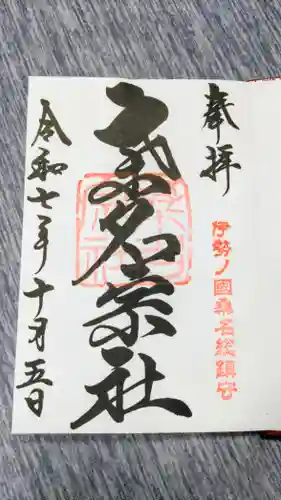 奉拝
伊勢ノ國桑名総鎮守
桑名宗社
令和七年十月五日